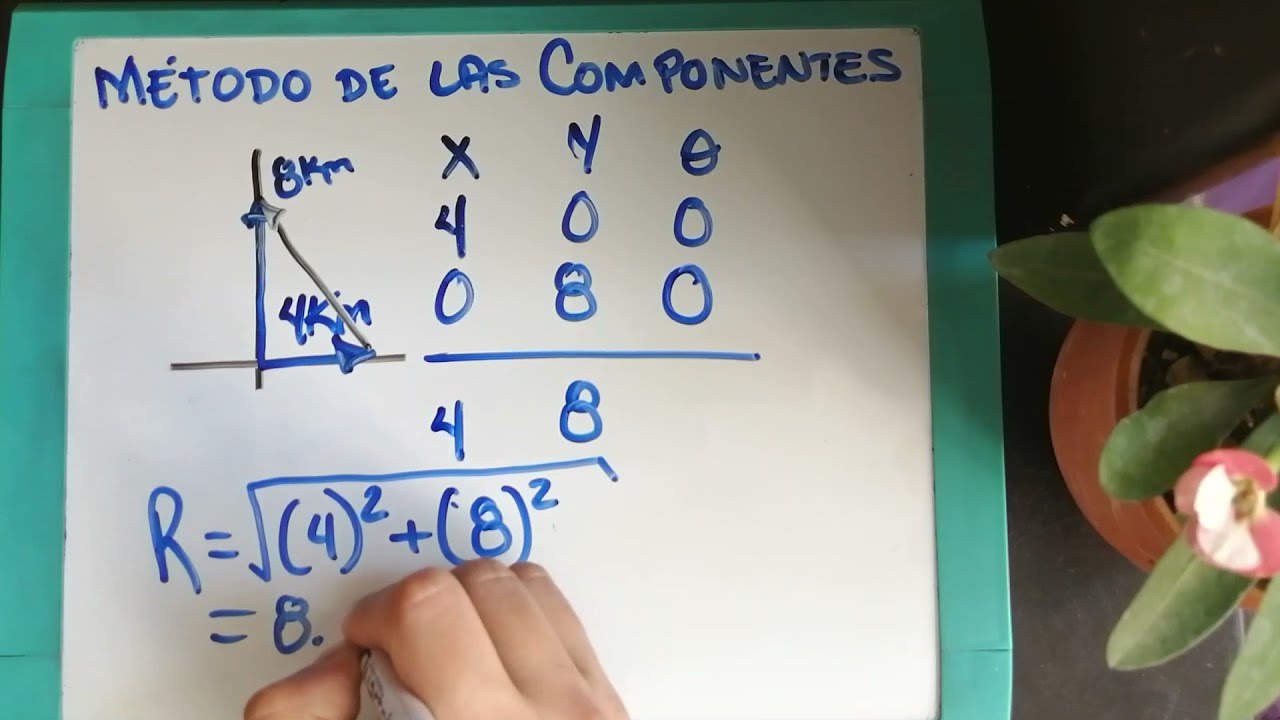 MÉTODO DE LAS COMPONENTES
8Km
4Km
X Y θ
4 0 0
0 8 0
4 8
R = √(4)² + (8)²
= 8.